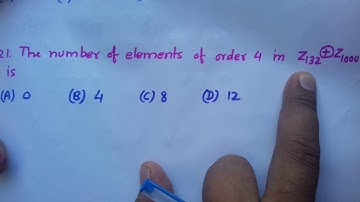 21. The number of elements of order 4 in Z₁₃₂⊕Z₁₀₀₀
is
(A) 0 (B) 4 (C) 8 (D) 12